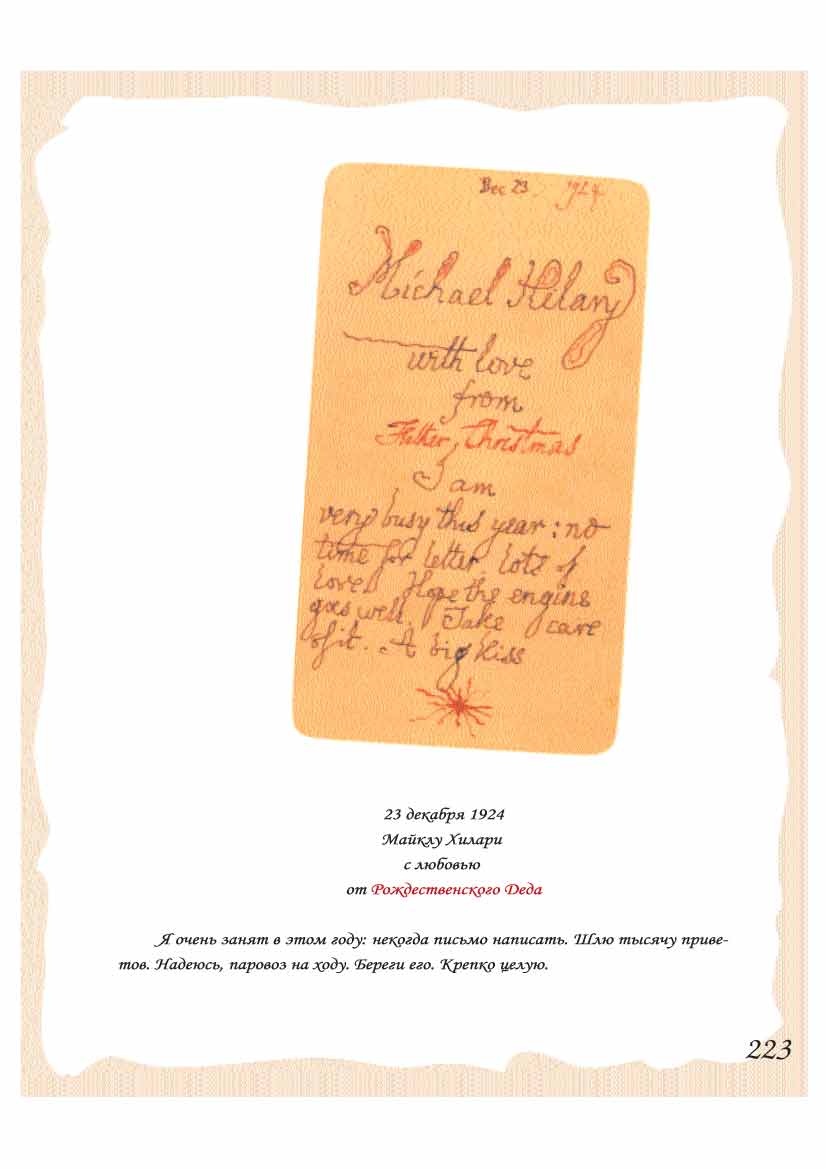 Dec 23. 1924
Michael Hilary
with love
from
Father Christmas
I am
very busy this year: no
time for letter. Lots of
love. Hope the engine
goes well. Take care
of it. A big kiss
23 декабря 1924
Майклу Хилари
с любовью
от Рождественского Деда
Я очень занят в этом году: некогда письмо написать. Шлю тысячу приве-
тов. Надеюсь, паровоз на ходу. Береги его. Крепко целую.
223